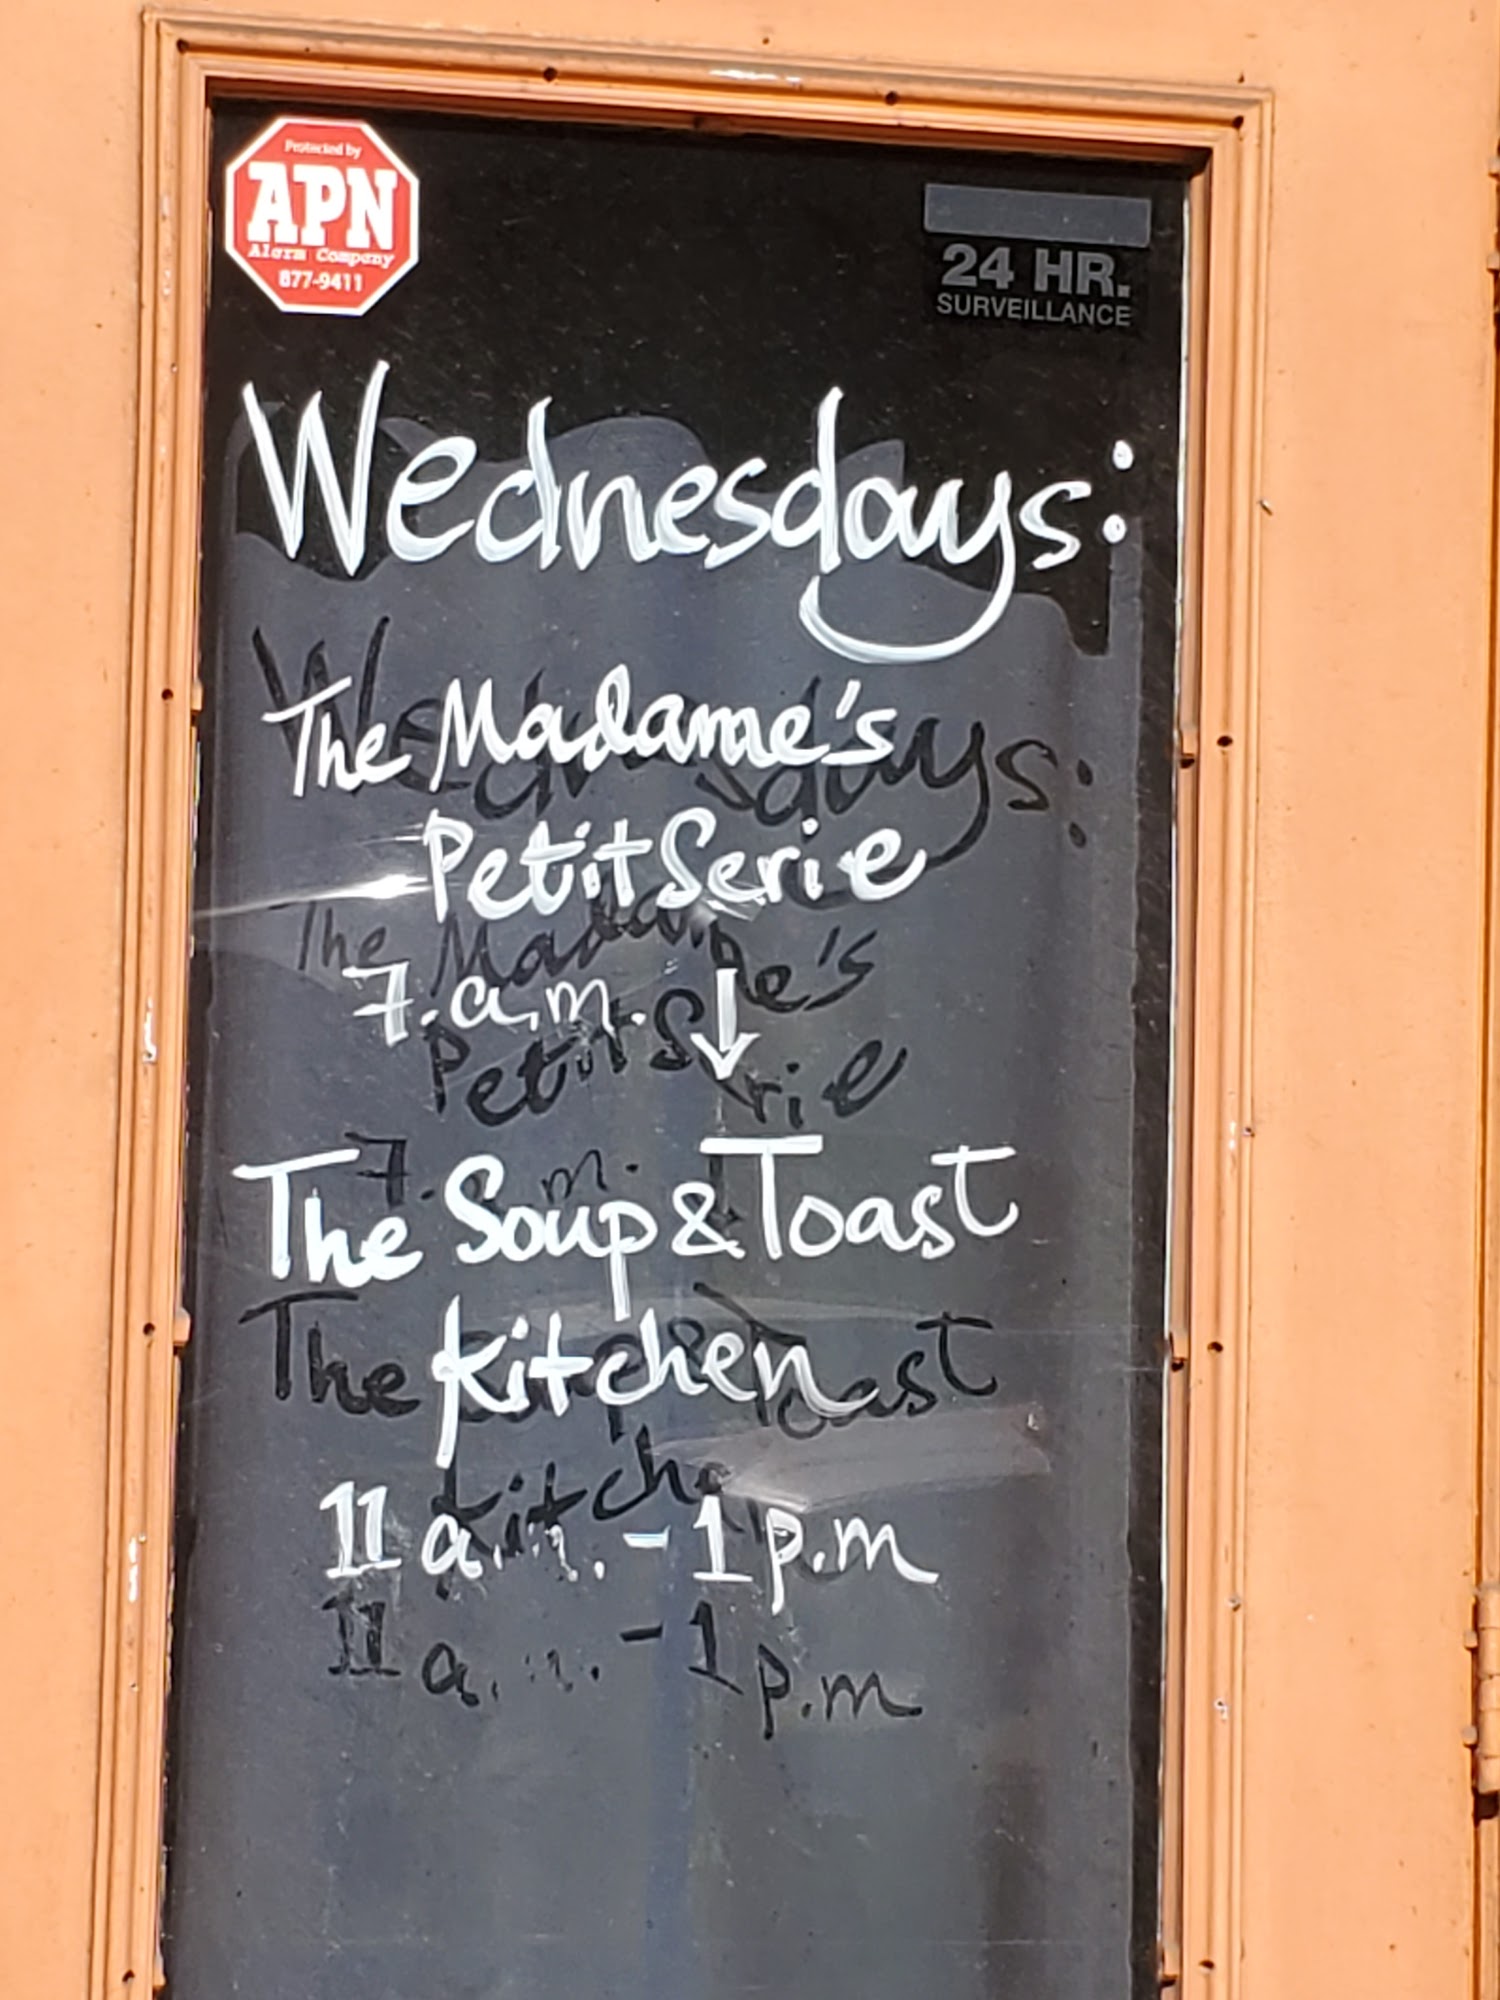 Protected by
APN
Alarm Company
877-9411
24 HR.
SURVEILLANCE
Wednesdays:
The Madame's
Petit Serie
7.a.m. ↓
The Soup & Toast
Kitchen
11 a.m. - 1 p.m